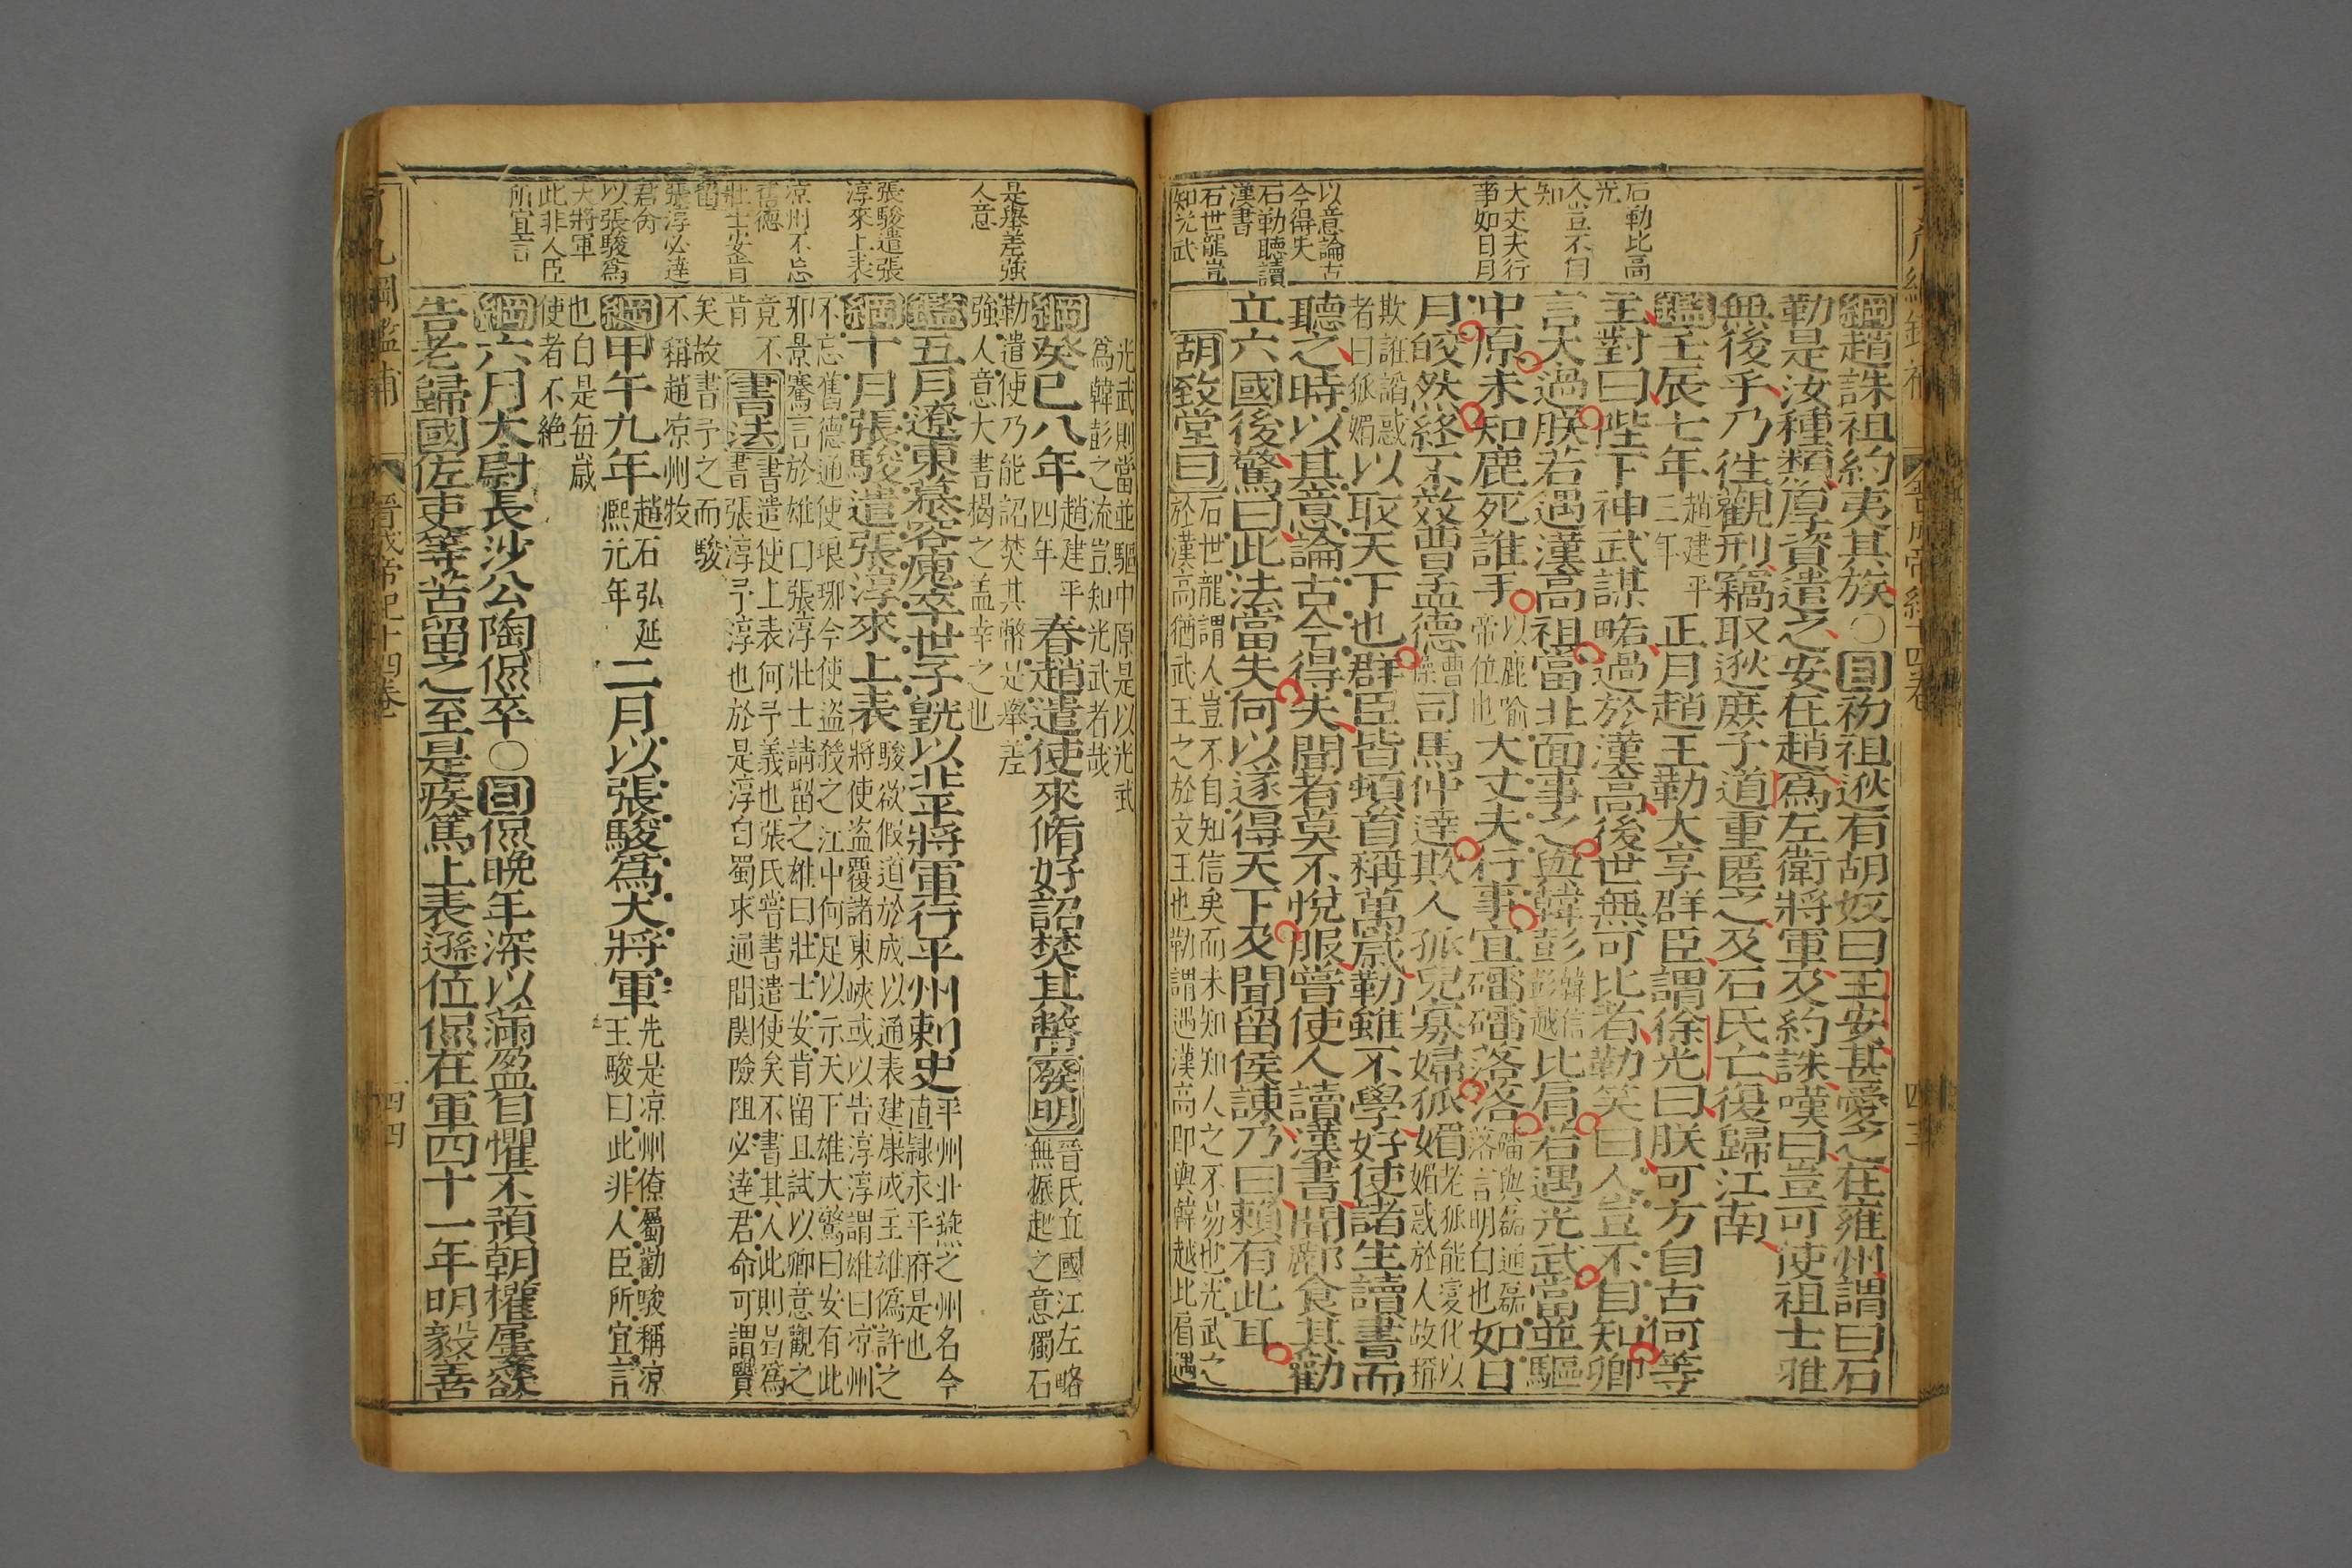 石勒比高
光
人豈不自
知
大丈夫行
事如日月
以意論古
今得失
石勒聽讀
漢書
石世龍豈
知光武
綱趙誅祖約夷其族○目初祖逖有胡奴曰王安甚愛之在雍州謂曰石
勒是汝種類厚資遣之安在趙爲左衛將軍及約誅嘆曰豈可使祖士雅
無後乎乃往觀刑竊取逖庶子道重匿之及石氏亡復歸江南
鑑壬辰七年趙建平三年正月趙王勒大享群臣謂徐光曰朕可方自古何等
主對曰陛下神武謀略過於漢高後世無可比者勒笑曰人豈不自知卿
言太過朕若遇漢高祖當北面事之與韓彭韓信彭越比肩若遇光武當並驅
中原未知鹿死誰手以鹿喻帝位也大丈夫行事宜礌礌落落礌與磊通磊落言明白也如日
月皎然終不效曹孟德曹操司馬仲達欺人孤兒寡婦狐媚老狐能變化以媚惑於人故稱
欺誑謟惑者曰狐媚以取天下也群臣皆頓首稱萬歲勒雖不學好使諸生讀書而
聽之時以其意論古今得失聞者莫不悅服嘗使人讀漢書聞酈食其勸
立六國後驚曰此法當失何以遂得天下及聞留侯諫乃曰賴有此耳
胡致堂曰石世龍謂人豈不自知信矣而未知知人之不易也光武之
於漢高猶武王之於文王也勒謂遇漢高即與韓越比肩遇
是舉差強
人意
張駿遣張
淳來上表
凉州不忘
舊德
壯士安肯
留
張淳必達
君命
以張駿爲
大將軍
此非人臣
所宜言
光武則當並驅中原是以光武
爲韓彭之流豈知光武者哉
綱癸巳八年趙建平四年春趙遣使來脩好詔焚其幣發明晉氏立國江左略無振起之意獨石
勒遣使乃能詔焚其幣是舉差
強人意大書揭之盖幸之也
鑑五月遼東慕容廆卒世子皝以平北將軍行平州刺史平州北燕之州名今直隷永平府是也
綱十月張駿遣張淳來上表駿欲假道於成以通表建康成主雄僞許之將使盗覆諸東峽或以告淳淳謂雄曰凉州
不忘舊德通使琅琊今使盗殺之江中何足以示天下雄大驚曰安有此
邪景騫言於雄曰張淳壯士請留之雄曰壯士安肯留且試以卿意觀之
竟不肯書法書遣使上表何予義也張氏嘗書遣使矣不書其人此則曷爲
書張淳予淳也於是淳自蜀求通間関險阻必達君命可謂賢
矣故書予之而駿
不稱趙凉州牧
綱甲午九年趙石弘延熈元年二月以張駿爲大將軍先是凉州僚屬勸駿稱凉王駿曰此非人臣所宜言
也白是每歲
使者不絶
綱六月太尉長沙公陶侃卒○目侃晩年深以滿盈自懼不預朝權屢欲
告老歸國佐吏等苦留之至是疾篤上表遜位侃在軍四十一年明毅善
晉成帝紀十四卷
四四